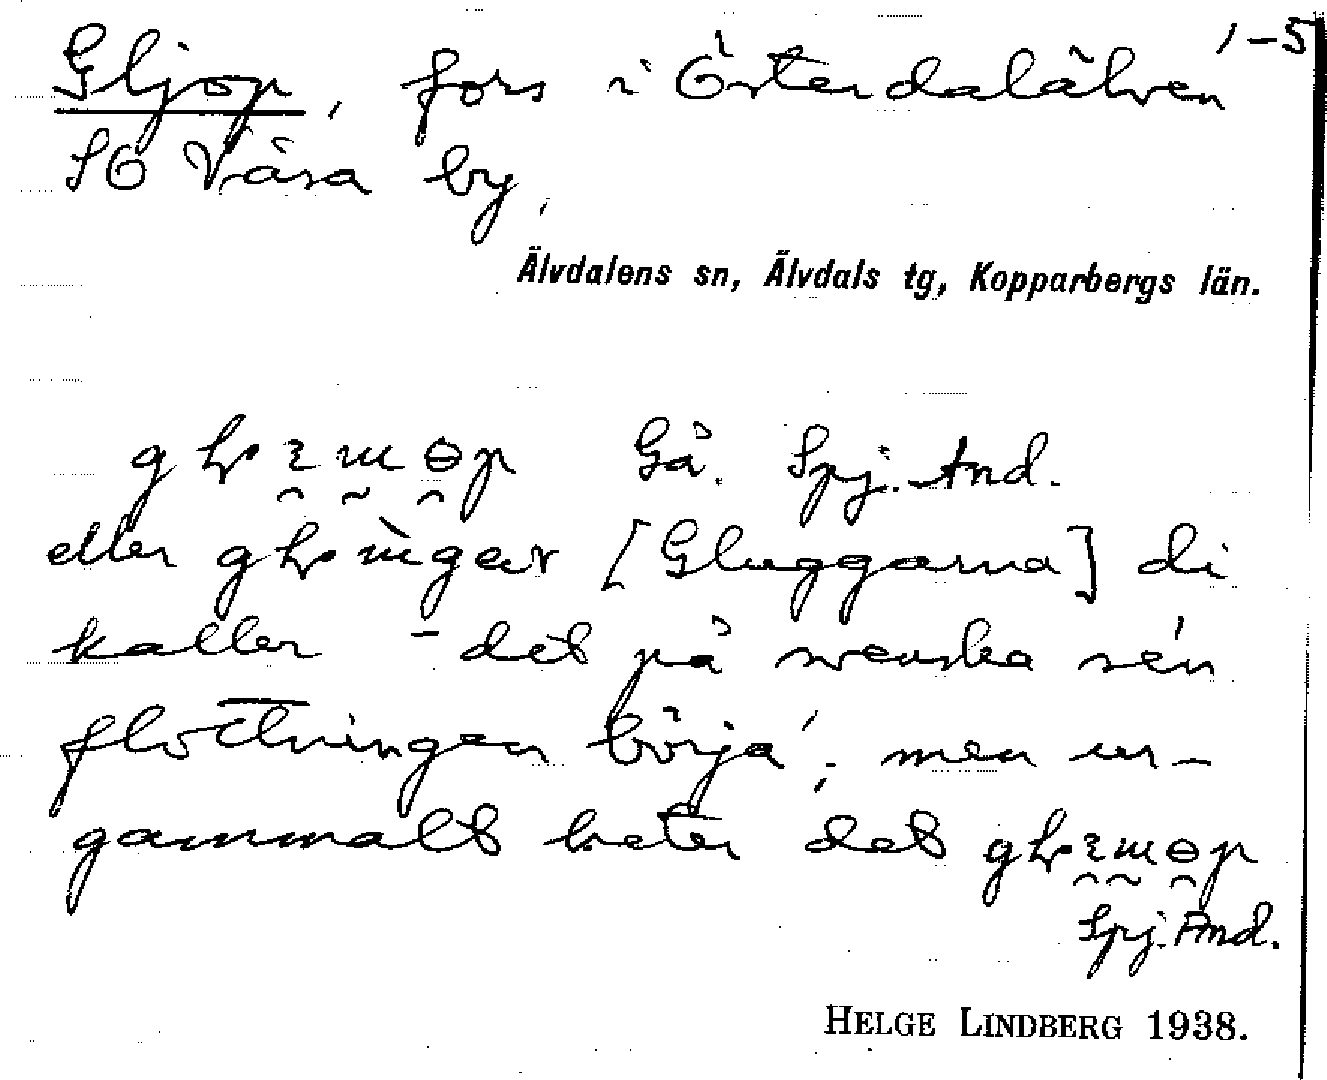 1-5
Gljop, fors i Österdalälven
SO Våsa by,
Älvdalens sn, Älvdals tg, Kopparbergs län.
Gå. Spj. And.
eller [Gluggarna] di
kaller - det på svenska sén
flottningen börja', men ur-
gammalt heter det
Spj. And.
HELGE LINDBERG 1938.